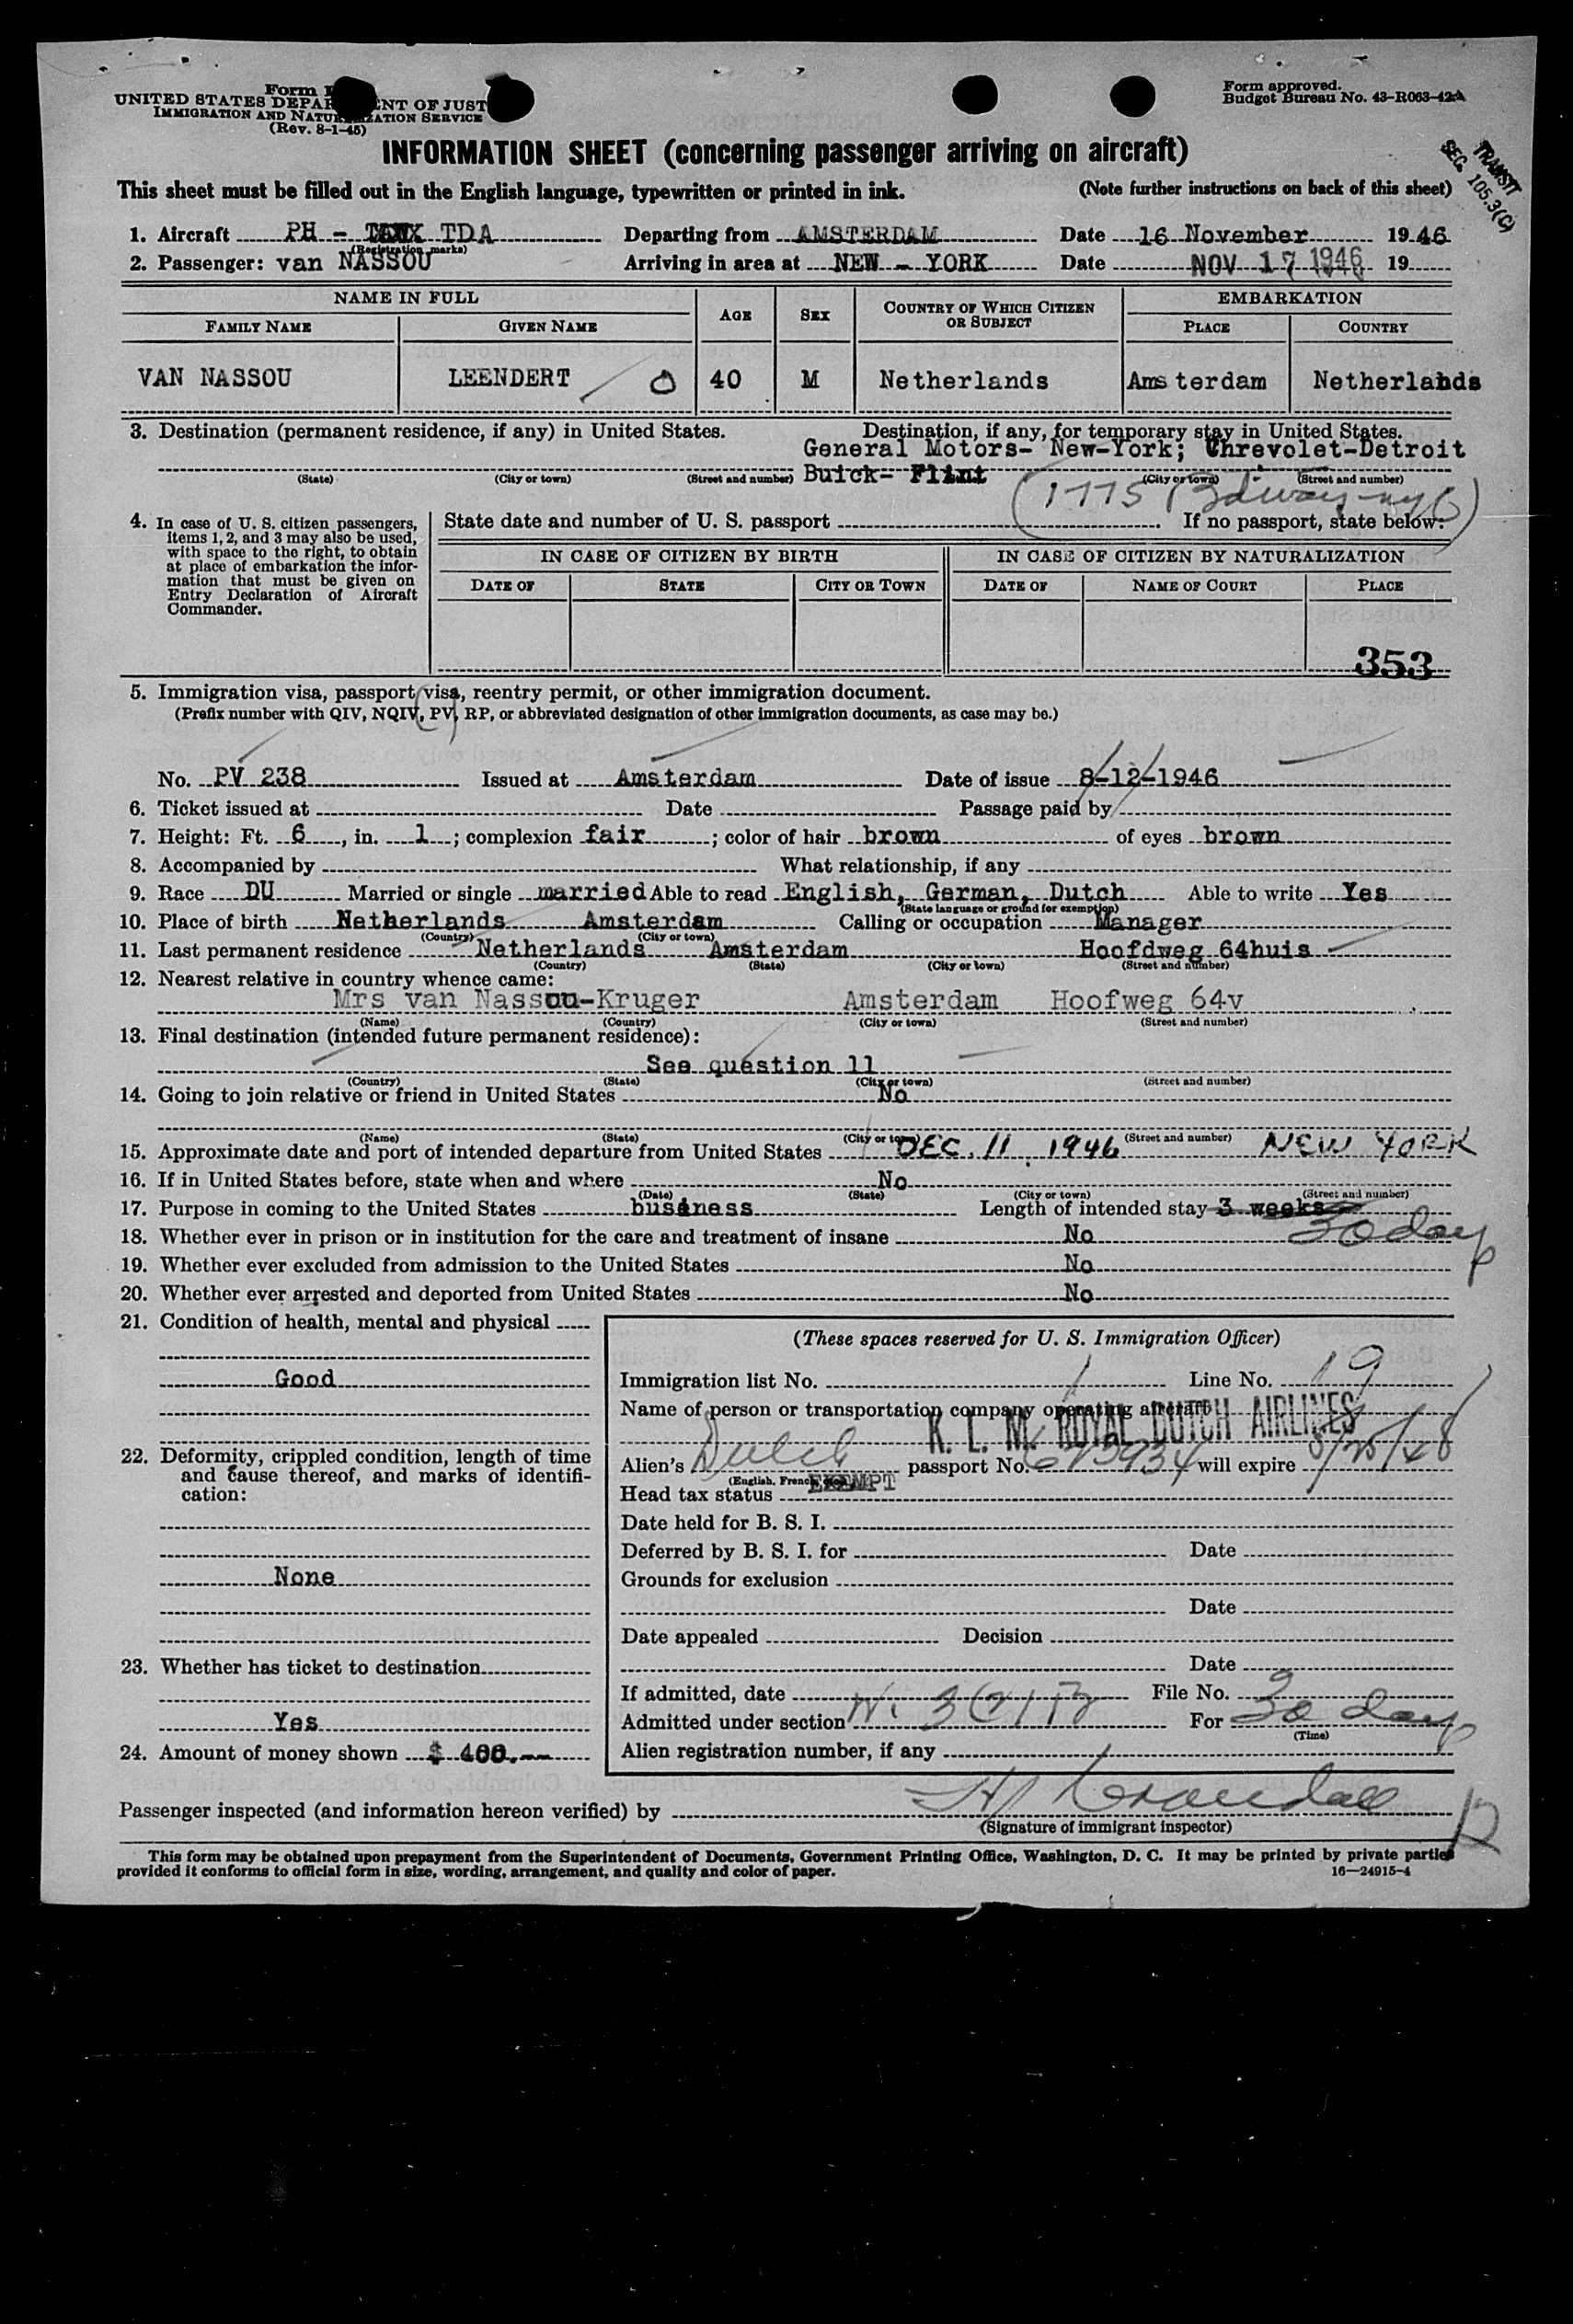 Form I
UNITED STATES DEPAR ENT OF JUST
IMMIGRATION AND NATU ZATION SERVICE
(Rev. 8-1-45)
Form approved.
Budget Bureau No. 43-R063-42
TRANSIT
SEC. 105.3(C)
INFORMATION SHEET (concerning passenger arriving on aircraft)
This sheet must be filled out in the English language, typewritten or printed in ink. (Note further instructions on back of this sheet)
1. Aircraft PH - TDA Departing from AMSTERDAM Date 16 November 1946
(Registration marks)
2. Passenger: van NASSOU Arriving in area at NEW - YORK Date NOV 17 1946 19
NAME IN FULL AGE SEX COUNTRY OF WHICH CITIZEN OR SUBJECT EMBARKATION
FAMILY NAME GIVEN NAME PLACE COUNTRY
VAN NASSOU LEENDERT 40 M Netherlands Ams terdam Netherlands
3. Destination (permanent residence, if any) in United States. Destination, if any, for temporary stay in United States.
General Motors- New-York; Chrevolet-Detroit
(State) (City or town) (Street and number) Buick- Flint (City or town) (Street and number)
(1775 Bdway-nyc)
4. In case of U. S. citizen passengers, items 1, 2, and 3 may also be used, with space to the right, to obtain at place of embarkation the information that must be given on Entry Declaration of Aircraft Commander.
State date and number of U. S. passport If no passport, state below:
IN CASE OF CITIZEN BY BIRTH IN CASE OF CITIZEN BY NATURALIZATION
DATE OF STATE CITY OR TOWN DATE OF NAME OF COURT PLACE
353
5. Immigration visa, passport visa, reentry permit, or other immigration document.
(Prefix number with QIV, NQIV, PV, RP, or abbreviated designation of other immigration documents, as case may be.)
No. PV 238 Issued at Amsterdam Date of issue 8-12-1946
6. Ticket issued at Date Passage paid by
7. Height: Ft. 6, in. 1; complexion fair; color of hair brown of eyes brown
8. Accompanied by What relationship, if any
9. Race DU Married or single married Able to read English, German, Dutch Able to write Yes
(State language or ground for exemption)
10. Place of birth Netherlands Amsterdam Calling or occupation Manager
(Country) (City or town)
11. Last permanent residence Netherlands Amsterdam Hoofdweg 64huis
(Country) (State) (City or town) (Street and number)
12. Nearest relative in country whence came:
Mrs van Nassou-Kruger Amsterdam Hoofweg 64v
(Name) (Country) (City or town) (Street and number)
13. Final destination (intended future permanent residence):
See question 11
(Country) (State) (City or town) (Street and number)
14. Going to join relative or friend in United States No
(Name) (State) (City or town) (Street and number)
15. Approximate date and port of intended departure from United States DEC. 11, 1946 NEW YORK
16. If in United States before, state when and where No
(Date) (State) (City or town) (Street and number)
17. Purpose in coming to the United States business Length of intended stay 3 weeks
30 days
18. Whether ever in prison or in institution for the care and treatment of insane No
19. Whether ever excluded from admission to the United States No
20. Whether ever arrested and deported from United States No
21. Condition of health, mental and physical
Good
22. Deformity, crippled condition, length of time and cause thereof, and marks of identification:
None
23. Whether has ticket to destination
Yes
24. Amount of money shown $ 400.--
(These spaces reserved for U. S. Immigration Officer)
Immigration list No. 1 Line No. 19
Name of person or transportation company operating aircraft
K. L. M. ROYAL DUTCH AIRLINES
Alien's Dutch passport No. will expire 8/25/48
(English, French, etc.)
Head tax status EXEMPT
Date held for B. S. I.
Deferred by B. S. I. for Date
Grounds for exclusion
Date
Date appealed Decision
Date
If admitted, date File No.
Admitted under section 3(2) B For 30 days
(Time)
Alien registration number, if any
Passenger inspected (and information hereon verified) by H Crandall
(Signature of immigrant inspector)
This form may be obtained upon prepayment from the Superintendent of Documents, Government Printing Office, Washington, D. C. It may be printed by private parties
provided it conforms to official form in size, wording, arrangement, and quality and color of paper. 16—24915-4